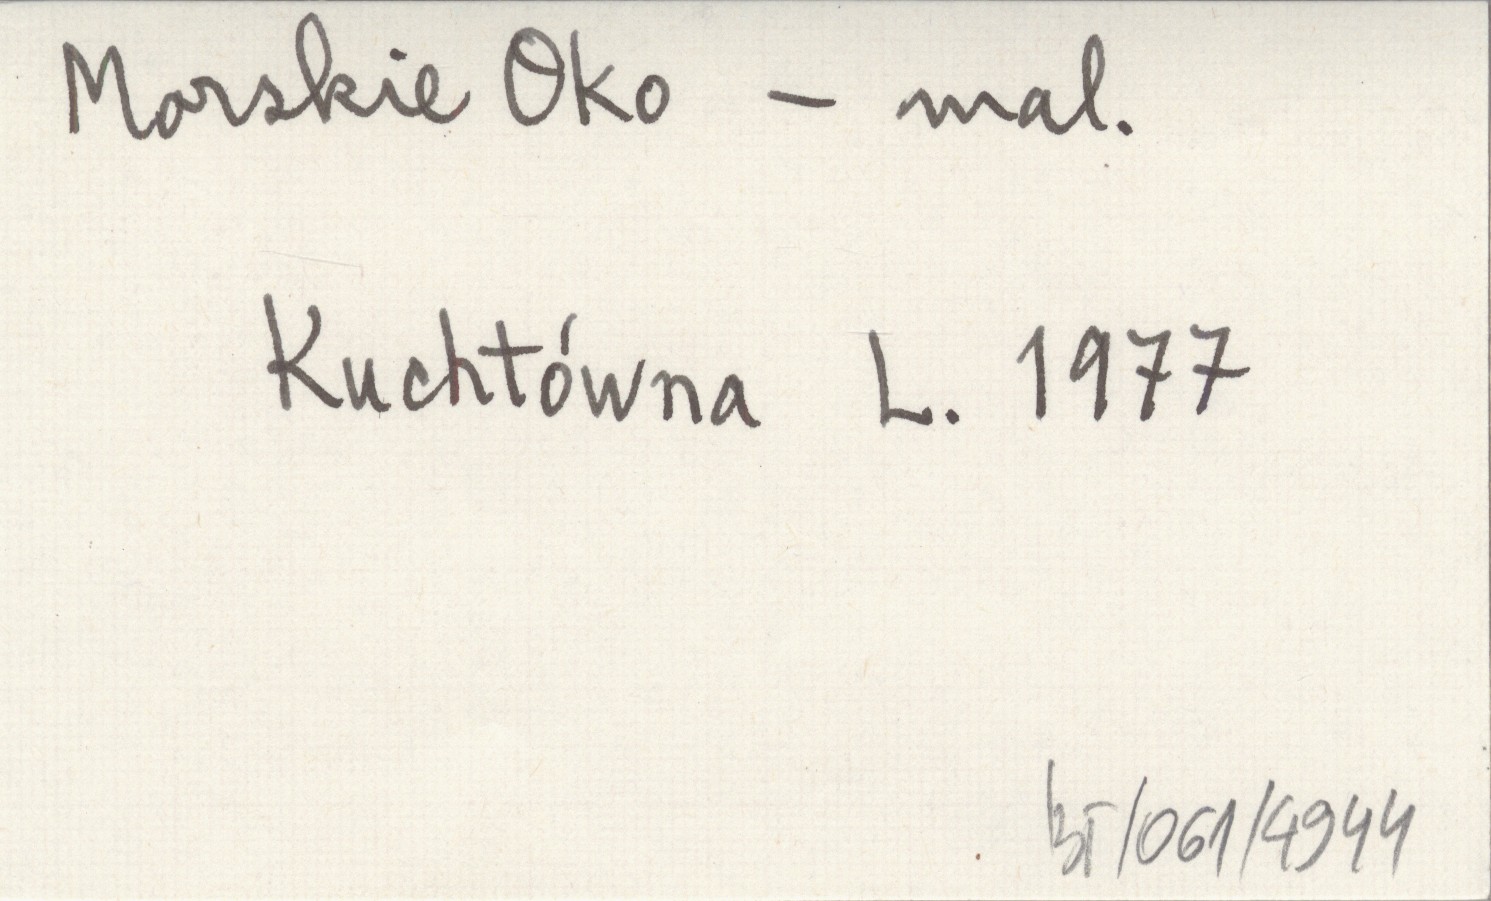 Morskie Oko – mal.
Kuchtówna L. 1977
BT/061/4944